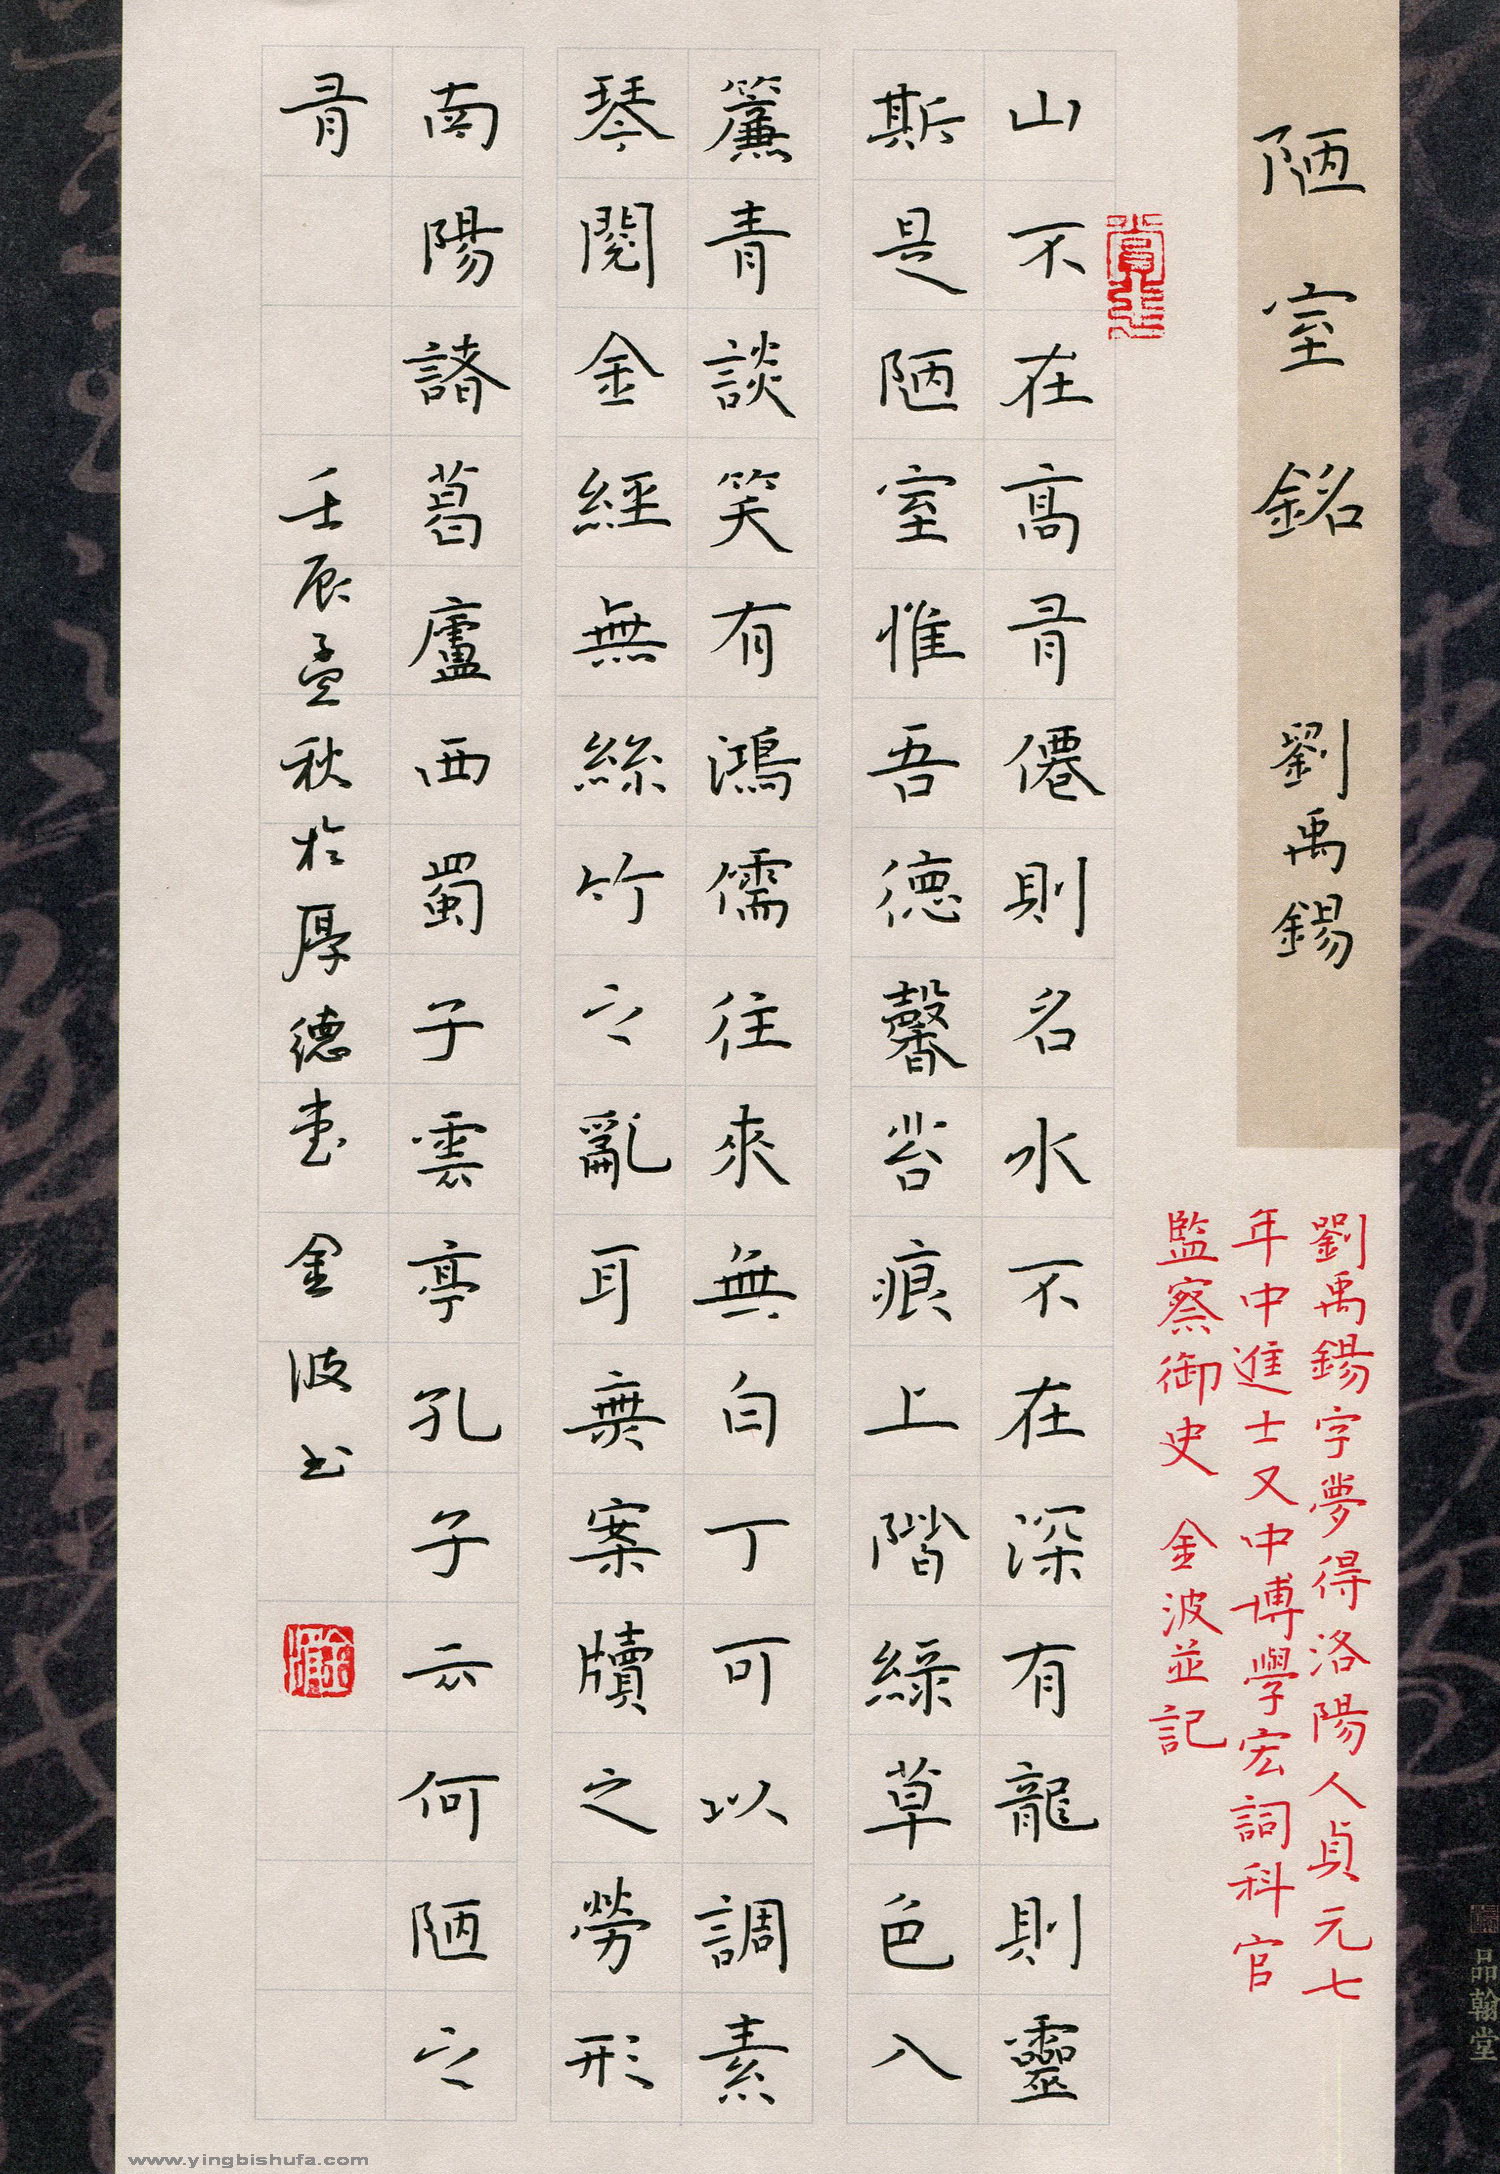 陋室銘 劉禹錫
劉禹錫字夢得洛陽人貞元七
年中進士又中博學宏詞科官
監察御史 金波並記
山不在高有僊則名水不在深有龍則靈
斯是陋室惟吾德馨苔痕上階綠草色入
簾青談笑有鴻儒往來無白丁可以調素
琴閱金經無絲竹之亂耳無案牘之勞形
南陽諸葛廬西蜀子雲亭孔子云何陋之
有 壬辰孟秋於厚德堂 金波书
品翰堂
www.yingbishufa.com